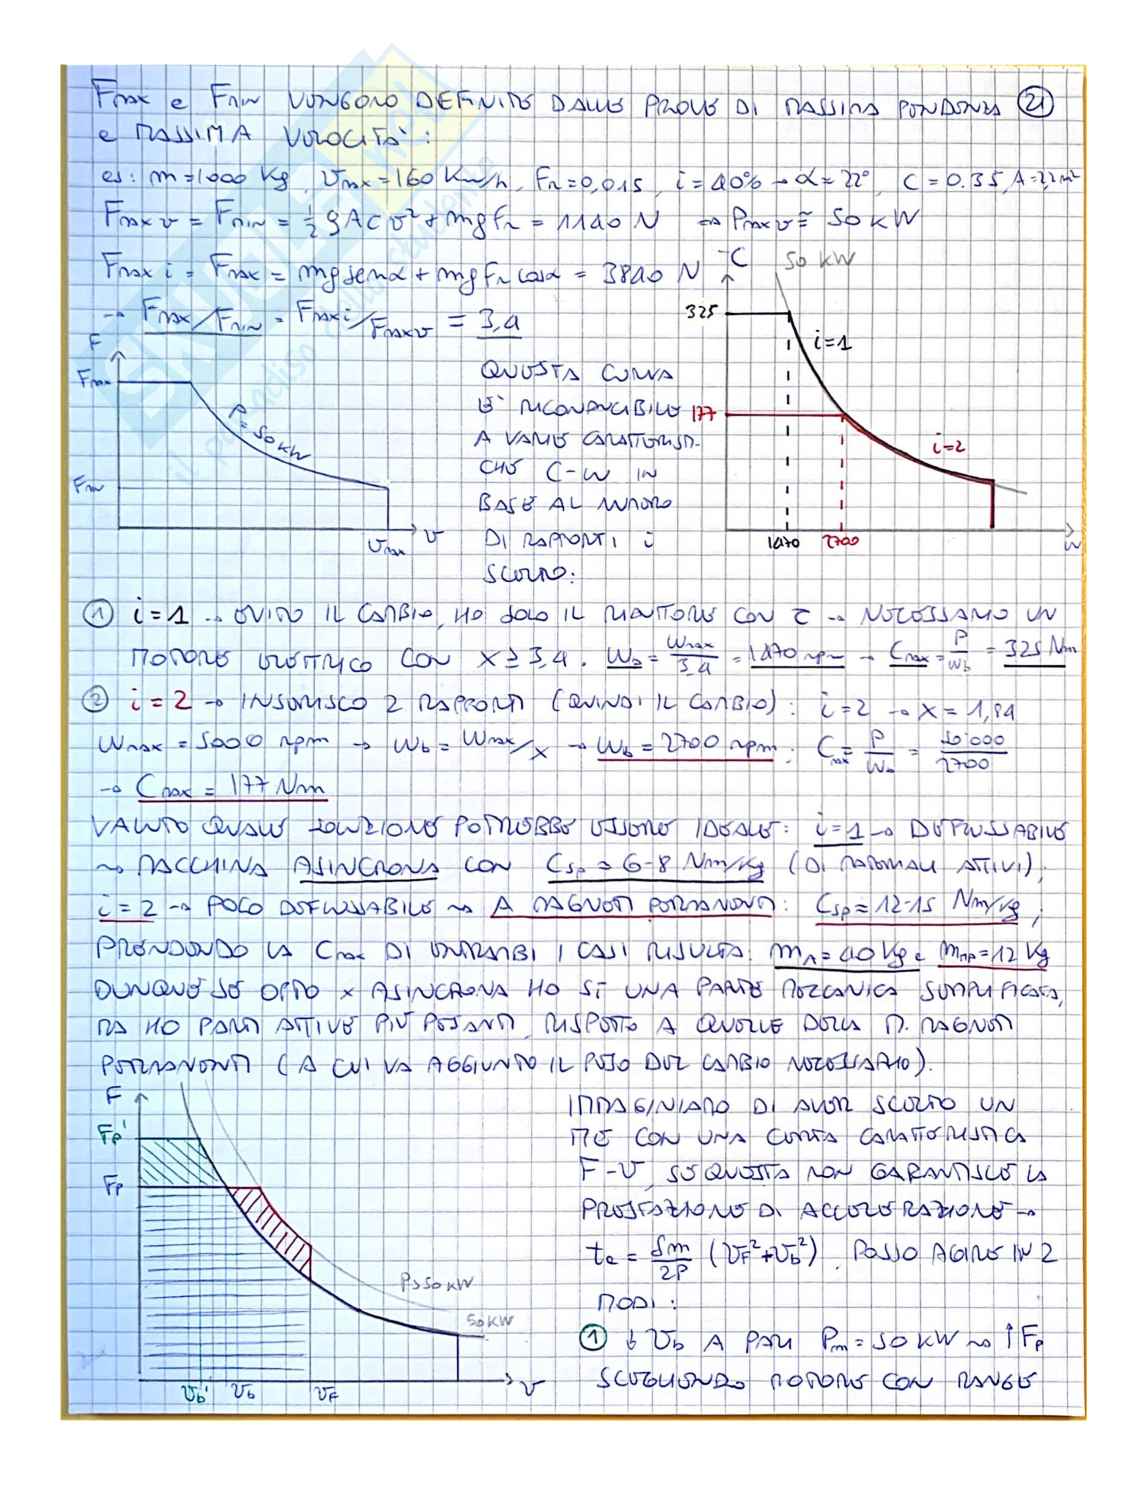 Fmax e Fmin VENGONO DEFINITE DALLE PROVE DI MASSIMA PENDENZA 21
e MASSIMA VELOCITÀ:
es: m=1000 Kg, Vmax=160 Km/h, Fr=0,015, i=40% → α=22°, C=0.35, A=2,2 m²
Fmax v = Fmin = 1/2 ρ A C v² + mg fr = 1140 N ⇒ Pmax v ≅ 50 kW
Fmax i = Fmax = mg senα + mg fr cosα = 3840 N
→ Fmax/Fmin = Fmax i/Fmax v = 3,4
F
Fmax
P=50 kW
Fmin
Vmax
v
QUESTA CURVA
E' RICONDUCIBILE
A VARIE CARATTERISTI-
CHE C-W IN
BASE AL NUMERO
DI RAPPORTI i
SCELTO:
C
50 kW
325
i=1
177
i=2
1470
2700
W
1 i=1 → EVITO IL CAMBIO, HO SOLO IL RIDUTTORE CON τ → NECESSARIO UN
MOTORE ELETTRICO CON X≥3,4. Wb = Wmax/3,4 = 1470 rpm → Cmax = P/Wb = 325 Nm
2 i=2 → INSERISCO 2 RAPPORTI (QUINDI IL CAMBIO): i=2 → X=1,84
Wmax = 5000 rpm → Wb = Wmax/X → Wb = 2700 rpm; Cmax = P/Wb = 50.000/2700
→ Cmax = 177 Nm
VALUTO QUALE SOLUZIONE POTREBBE ESSERE IDEALE: i=1 → DEFLUSSABILE
~> MACCHINA ASINCRONA CON Csp = 6-8 Nm/Kg (DI MATERIALI ATTIVI);
i=2 → POCO DEFLUSSABILE ~> A MAGNETI PERMANENTI: Csp = 12-15 Nm/Kg;
PRENDENDO LA Cmax DI ENTRAMBI I CASI RISULTA: mA = 40 Kg e mMP = 12 Kg
DUNQUE SE OPTO x ASINCRONA HO SI UNA PARTE MECCANICA SEMPLIFICATA,
MA HO PARTI ATTIVE PIÙ PESANTI RISPETTO A QUELLE DELLA M. MAGNETI
PERMANENTI (A CUI VA AGGIUNTO IL PESO DEL CAMBIO NECESSARIO).
F
Fp'
Fp
P>50 kW
50 kW
Vb'
Vb
VF
v
IMMAGINIAMO DI AVER SCELTO UN
ME CON UNA CERTA CARATTERISTICA
F-V, SE QUESTA NON GARANTISCE LA
PRESTAZIONE DI ACCELERAZIONE →
ta = δm/2P (VF²+Vb²), POSSO AGIRE IN 2
MODI:
1 ↓ Vb A PARI Pm = 50 kW ~> ↑Fp
SCEGLIENDO MOTORE CON RANGE